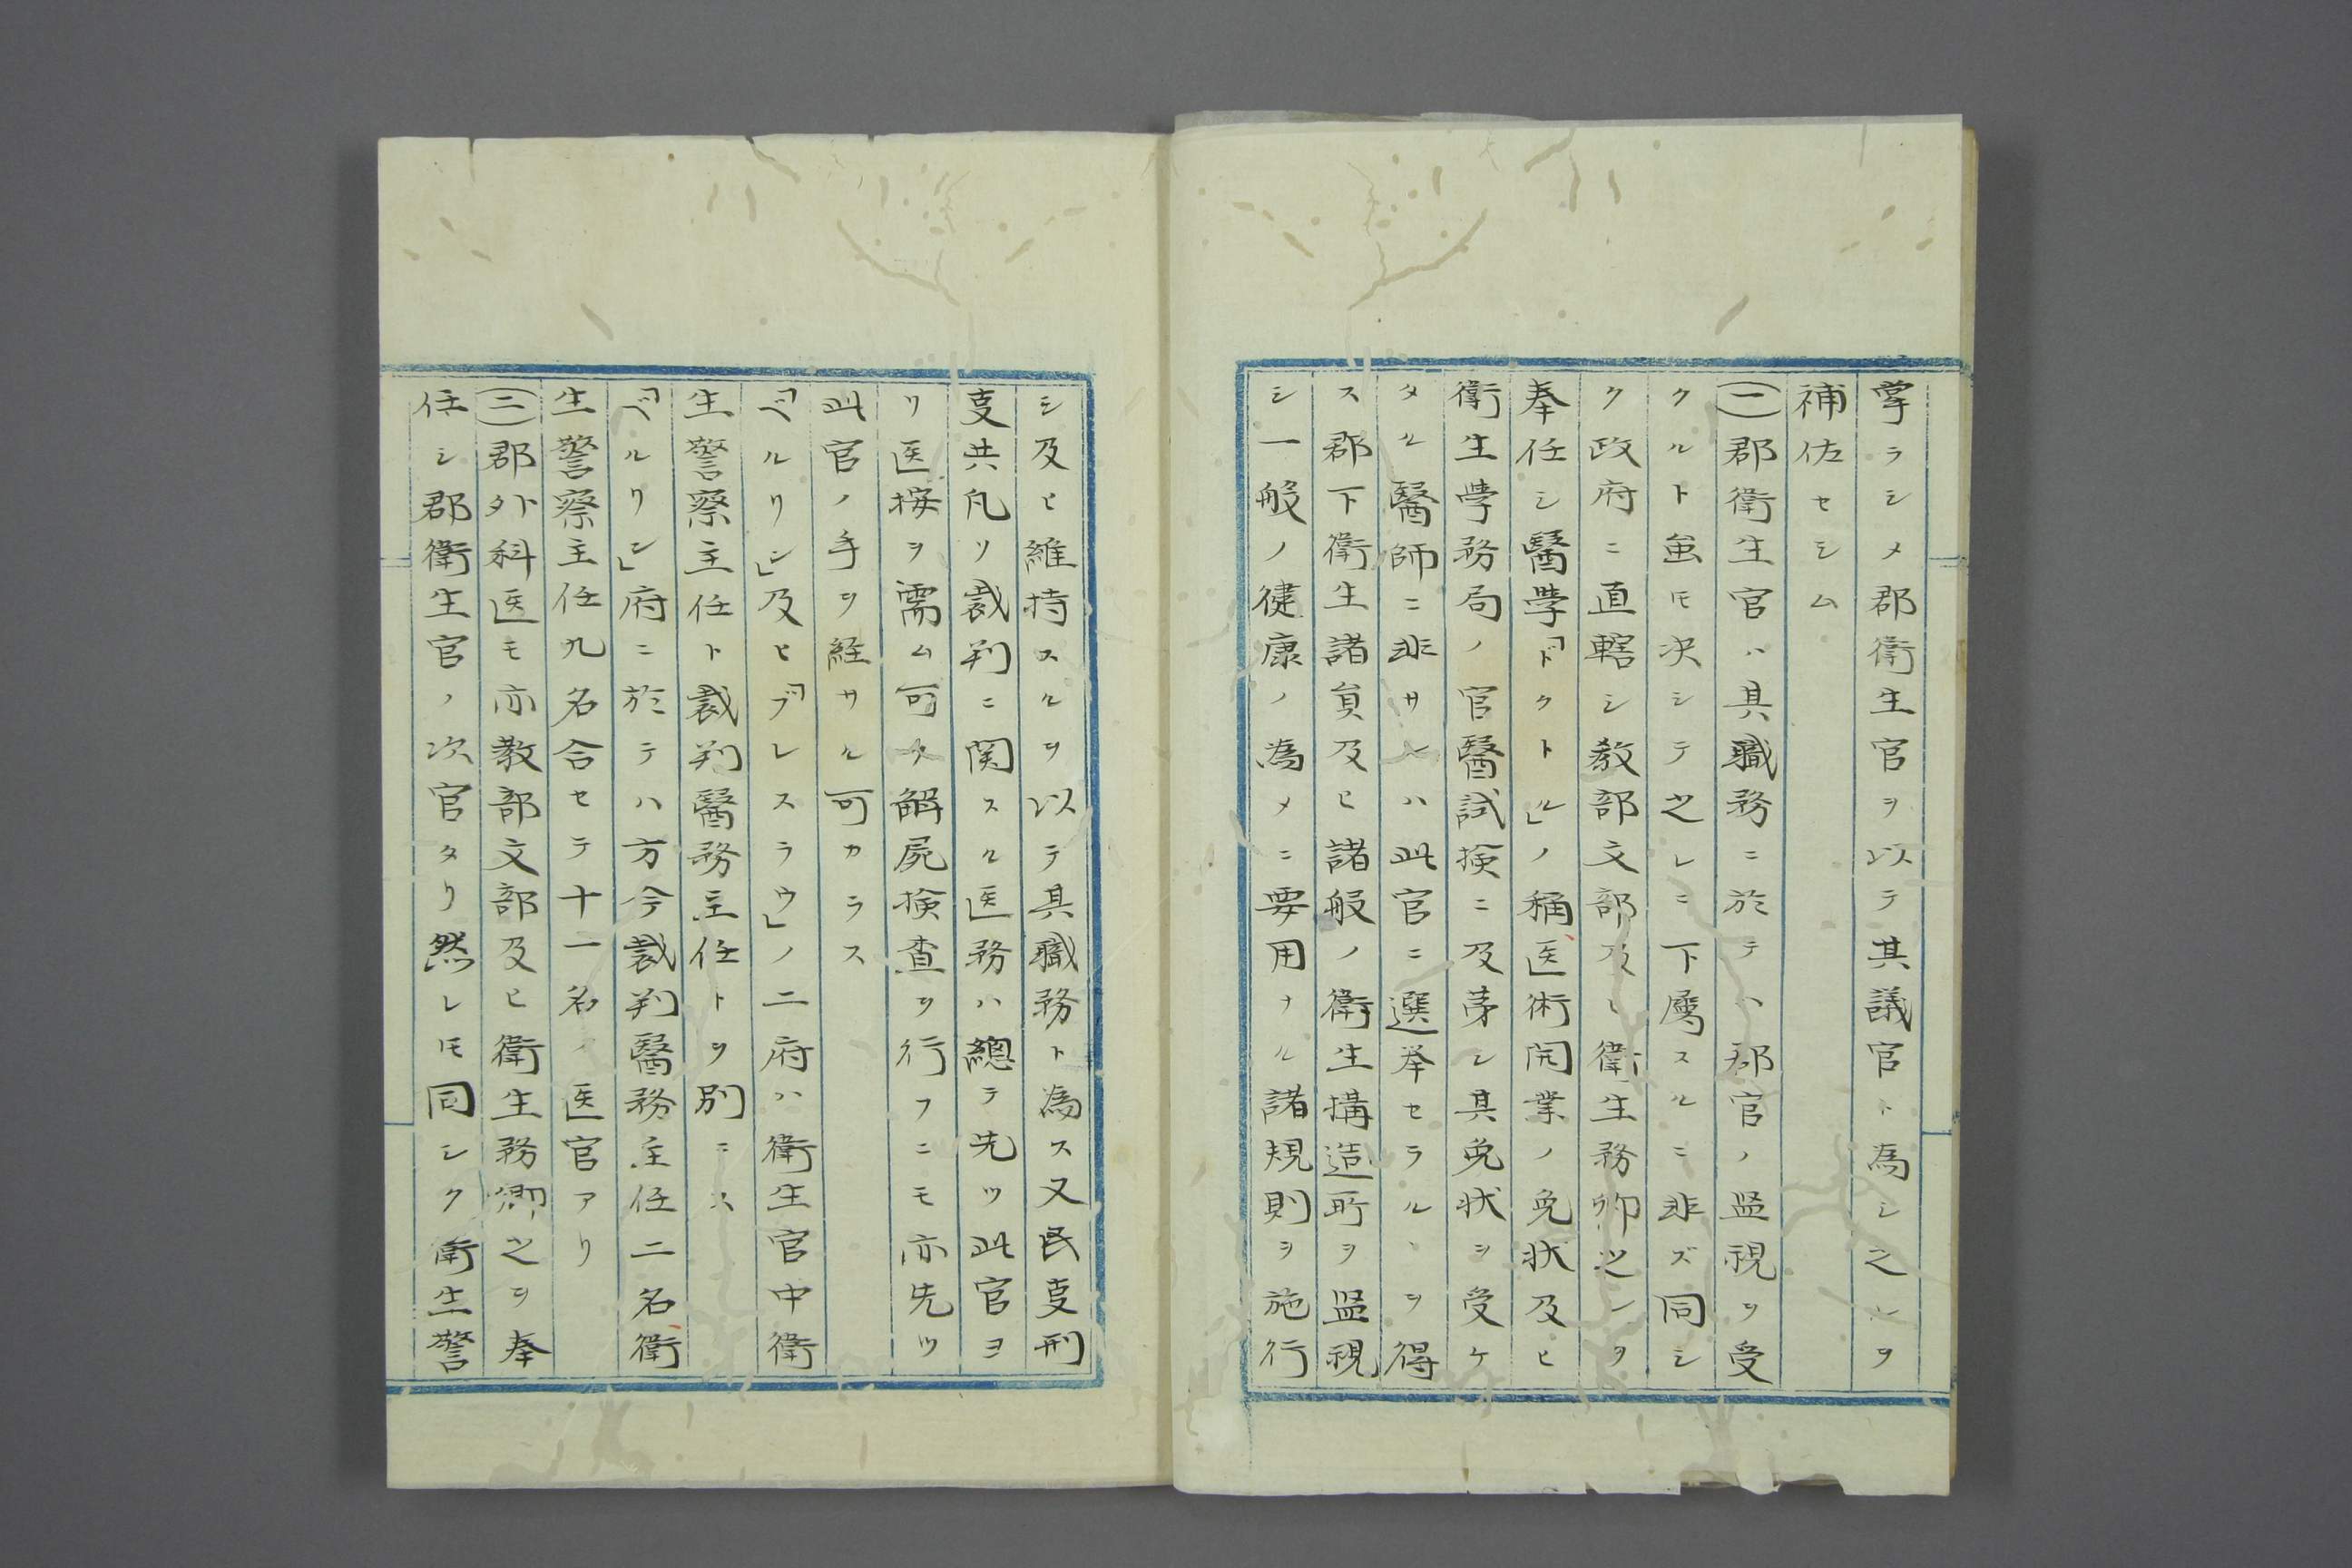 掌ラシメ郡衛生官ヲ以テ其議官ト為シ之レヲ
補佐セシム
(一)郡衛生官ハ其職務ニ於テハ郡官ノ监視ヲ受
クルト虽モ决シテ之レニ下属スルニ非ズ同シ
ク政府ニ直轄シ教部文部及ヒ衛生務卿之レヲ
奉任シ醫學「ドクトル」ノ稱医術開業ノ免状及ヒ
衛生學務局ノ官醫試験ニ及苐シ其免状ヲ受ケ
タル醫師ニ非サレハ此官ニ選挙セラルヽヲ得
ス郡下衛生諸負及ヒ諸般ノ衛生搆造所ヲ监視
シ一般ノ健康ノ為メニ要用ナル諸規則ヲ施行
シ及ヒ維持スルヲ以テ其職務ト為ス又民叓刑
叓共凡ソ裁判ニ関スル医務ハ總テ先ツ此官ヨ
リ医按ヲ需ム可ク解屍検査ヲ行フニモ亦先ツ
此官ノ手ヲ経サル可カラス
「ベルリン」及ヒ「ブレスラウ」ノ二府ハ衛生官中衛
生警察主任ト裁判醫務主任トヲ別ニス
「ベルリン」府ニ於テハ方今裁判醫務主任二名衛
生警察主任九名合セテ十一名ノ医官アリ
(二)郡外科医モ亦教部文部及ヒ衛生務卿之ヲ奉
任シ郡衛生官ノ次官タリ然レ𪜈同シク衛生警